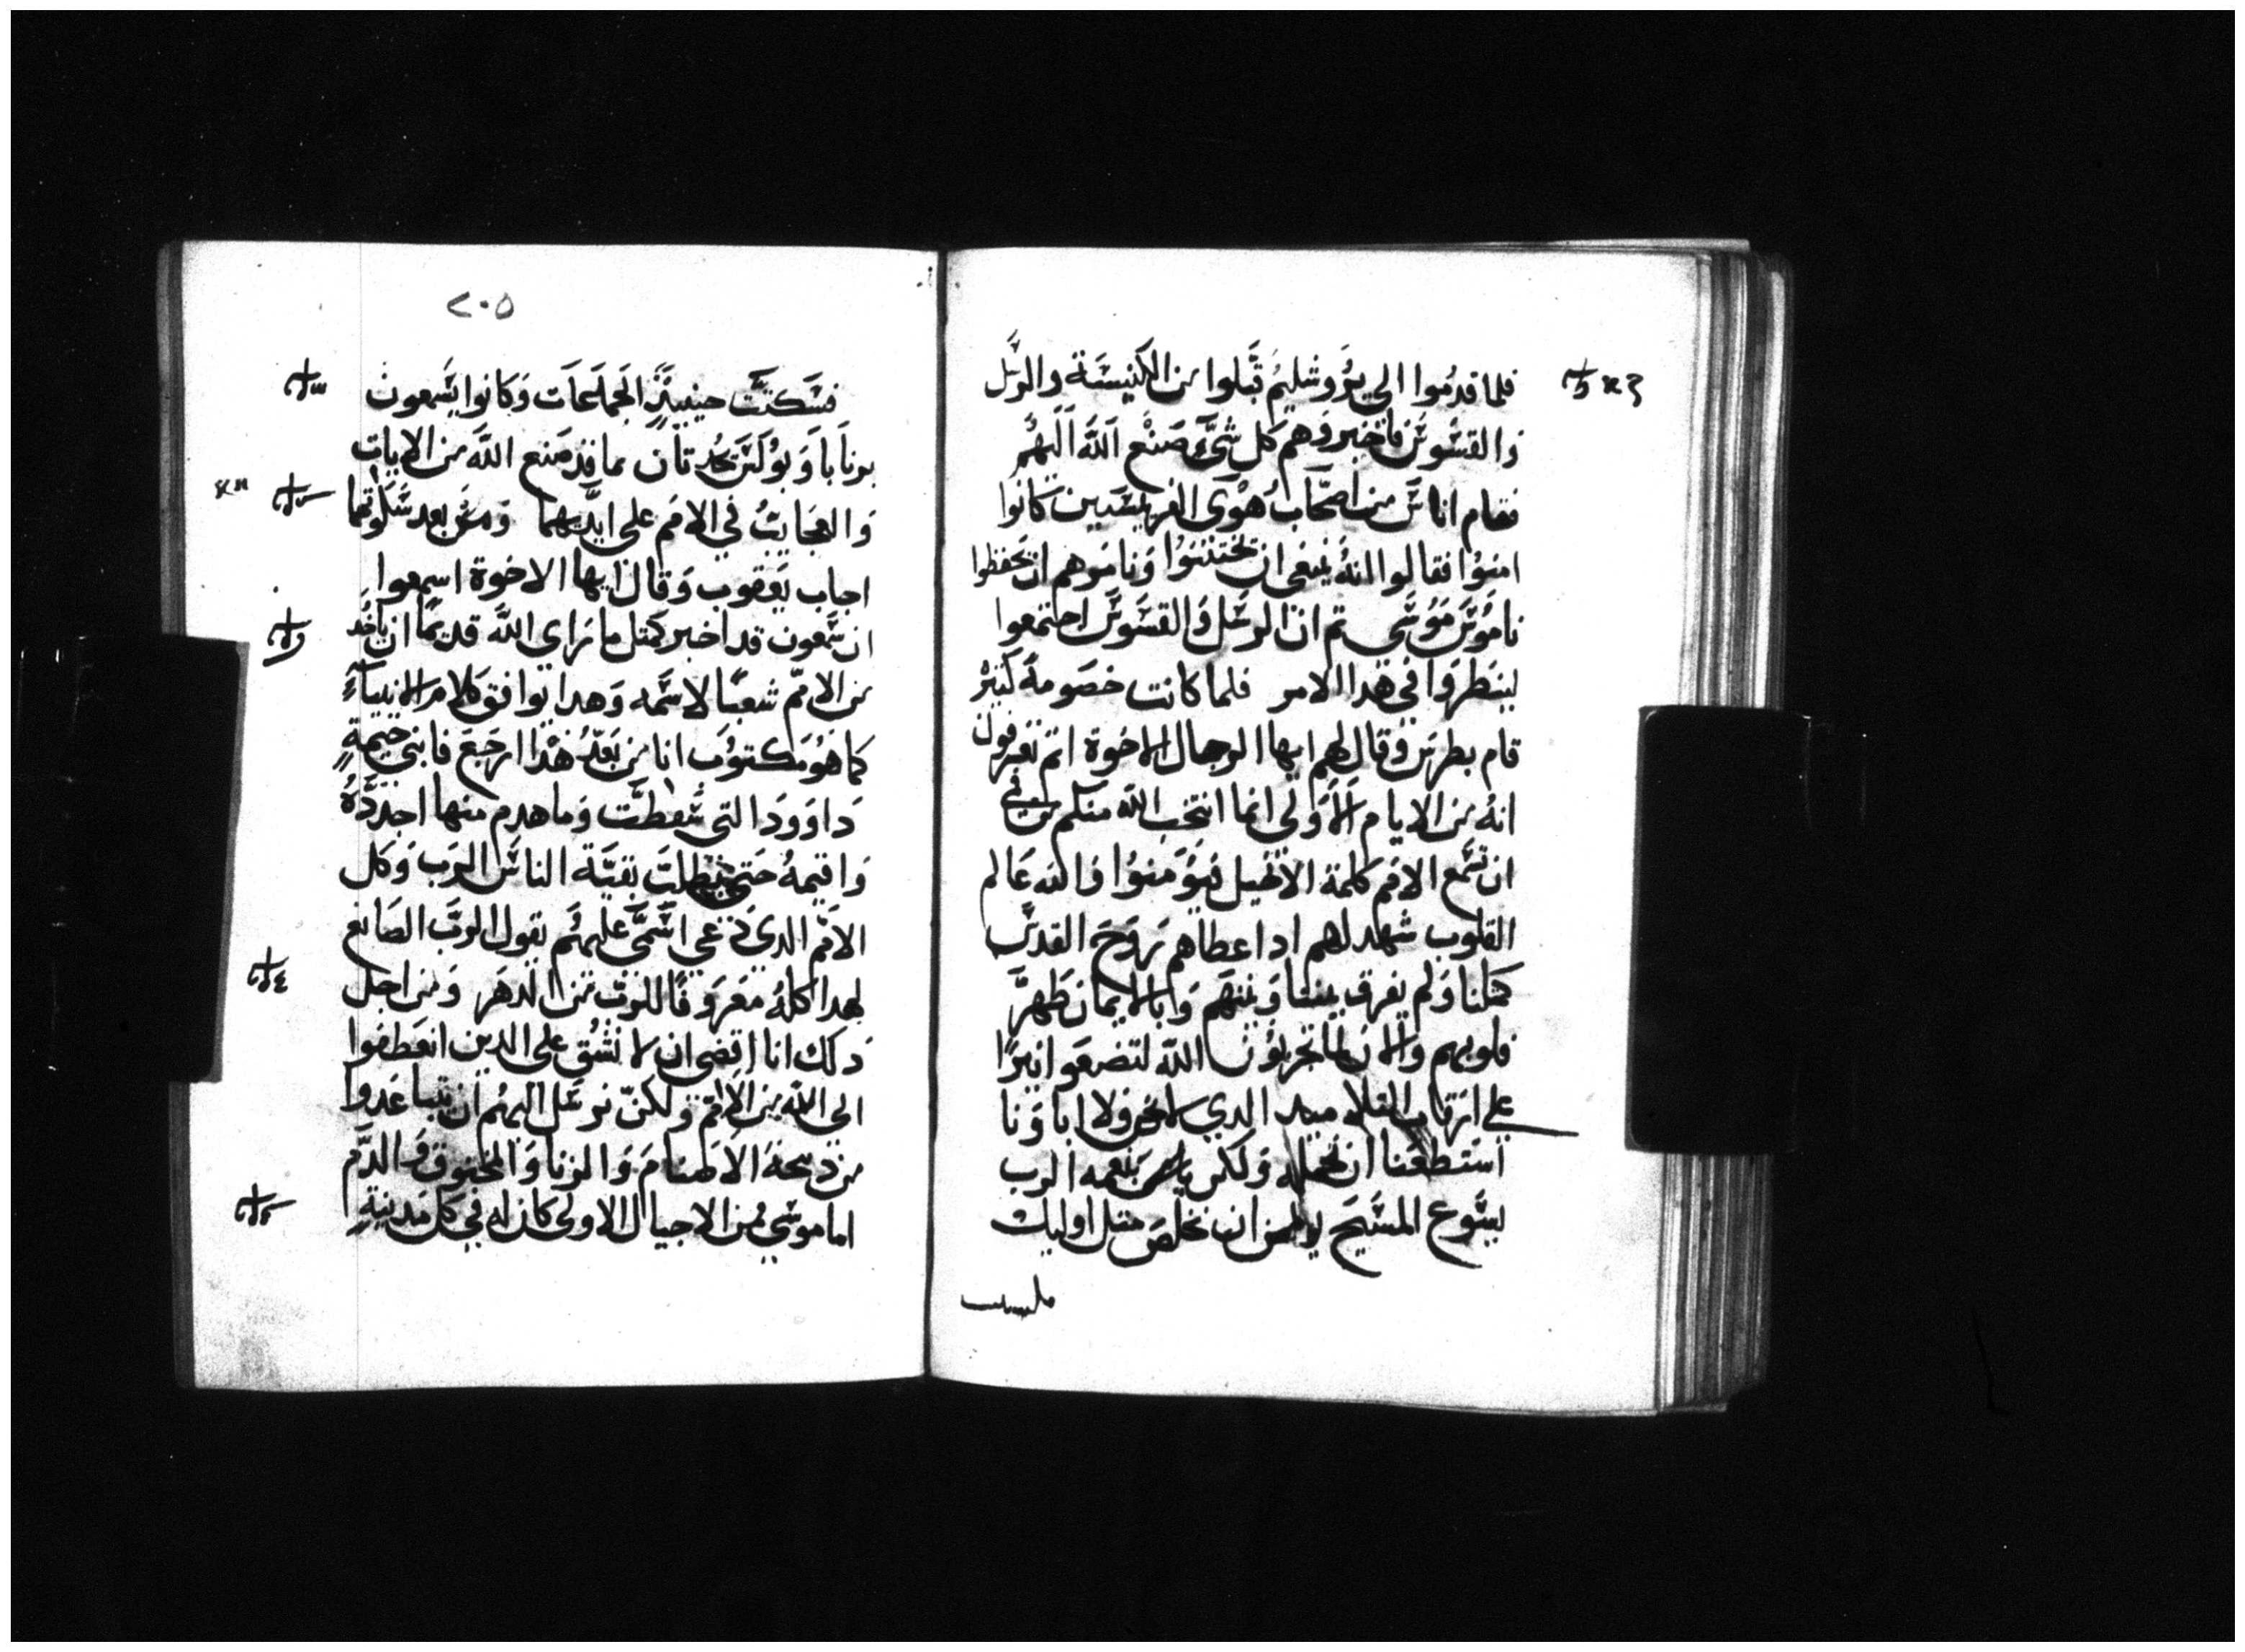 فلما قدموا الي يروشليم قبلوا من الكنيسة والرسل
والقسوس فاخبروهم كل شيء صنع الله اليهم
فقام اناس من اصحاب هوي الفريسيين كانوا
امنوا فقالوا انه ينبغي ان يختتنوا وناموهم ان يحفظوا
ناموس موسي تم ان الرسل والقسوس اجتمعوا
لينظروا في هدا الامر فلما كانت خصومة كتير
قام بطرس وقال لهم ايها الرجال الاخوة انتم تعرفون
انه من الايام الاولي انما انتخب الله منكم من في
ان تسمع الامم كلمة الانجيل فيؤمنوا والله عالم
القلوب شهد لهم اد اعطاهم روح القدس
كمثلنا ولم يفرق بيننا وبينهم وبالايمان طهر
قلوبهم والان لما تجربون الله لتضعوا نيرا
علي ارقاب التلاميد الدي لا نحن ولا اباونا
استطعنا ان نحمله ولكن بنعمه الرب
يسوع المسيح نومن ان نخلص متل اوليك
٢٠٥
فسكتت حينيذ الجماعات وكانوا يسمعون
برنابا وبولس يحدتان بما قد صنع الله من الايات
والعجايب في الامم علي ايديهما ومن بعد سكوتهما
اجاب يعقوب وقال ايها الاخوة اسمعوا
ان سمعون قد اخبر كمتل ما راي الله قديما ان ياخد
من الامم شعبا لاسمه وهدا يوافق كلام الانبياء
كما هو مكتوب انا من بعد هدا ارجع فابني خيمة
داوود التي سقطت وما هدم منها اجدده
واقيمه حتي تطلب بقية الناس الرب وكل
الامم الدي دعي اسمي عليهم يقول الرب الصانع
لهدا كله معروفا للرب من الدهر ومن اجل
دلك انا اقضي ان لا نشق علي الدين انعطفوا
الي الله من الامم ولكن نرسل اليهم ان يتباعدوا
من دبيحة الاصنام والزنا والمخنوق والدم
اما موسي فمن الاجيال الاولي كان له في كل مدينة